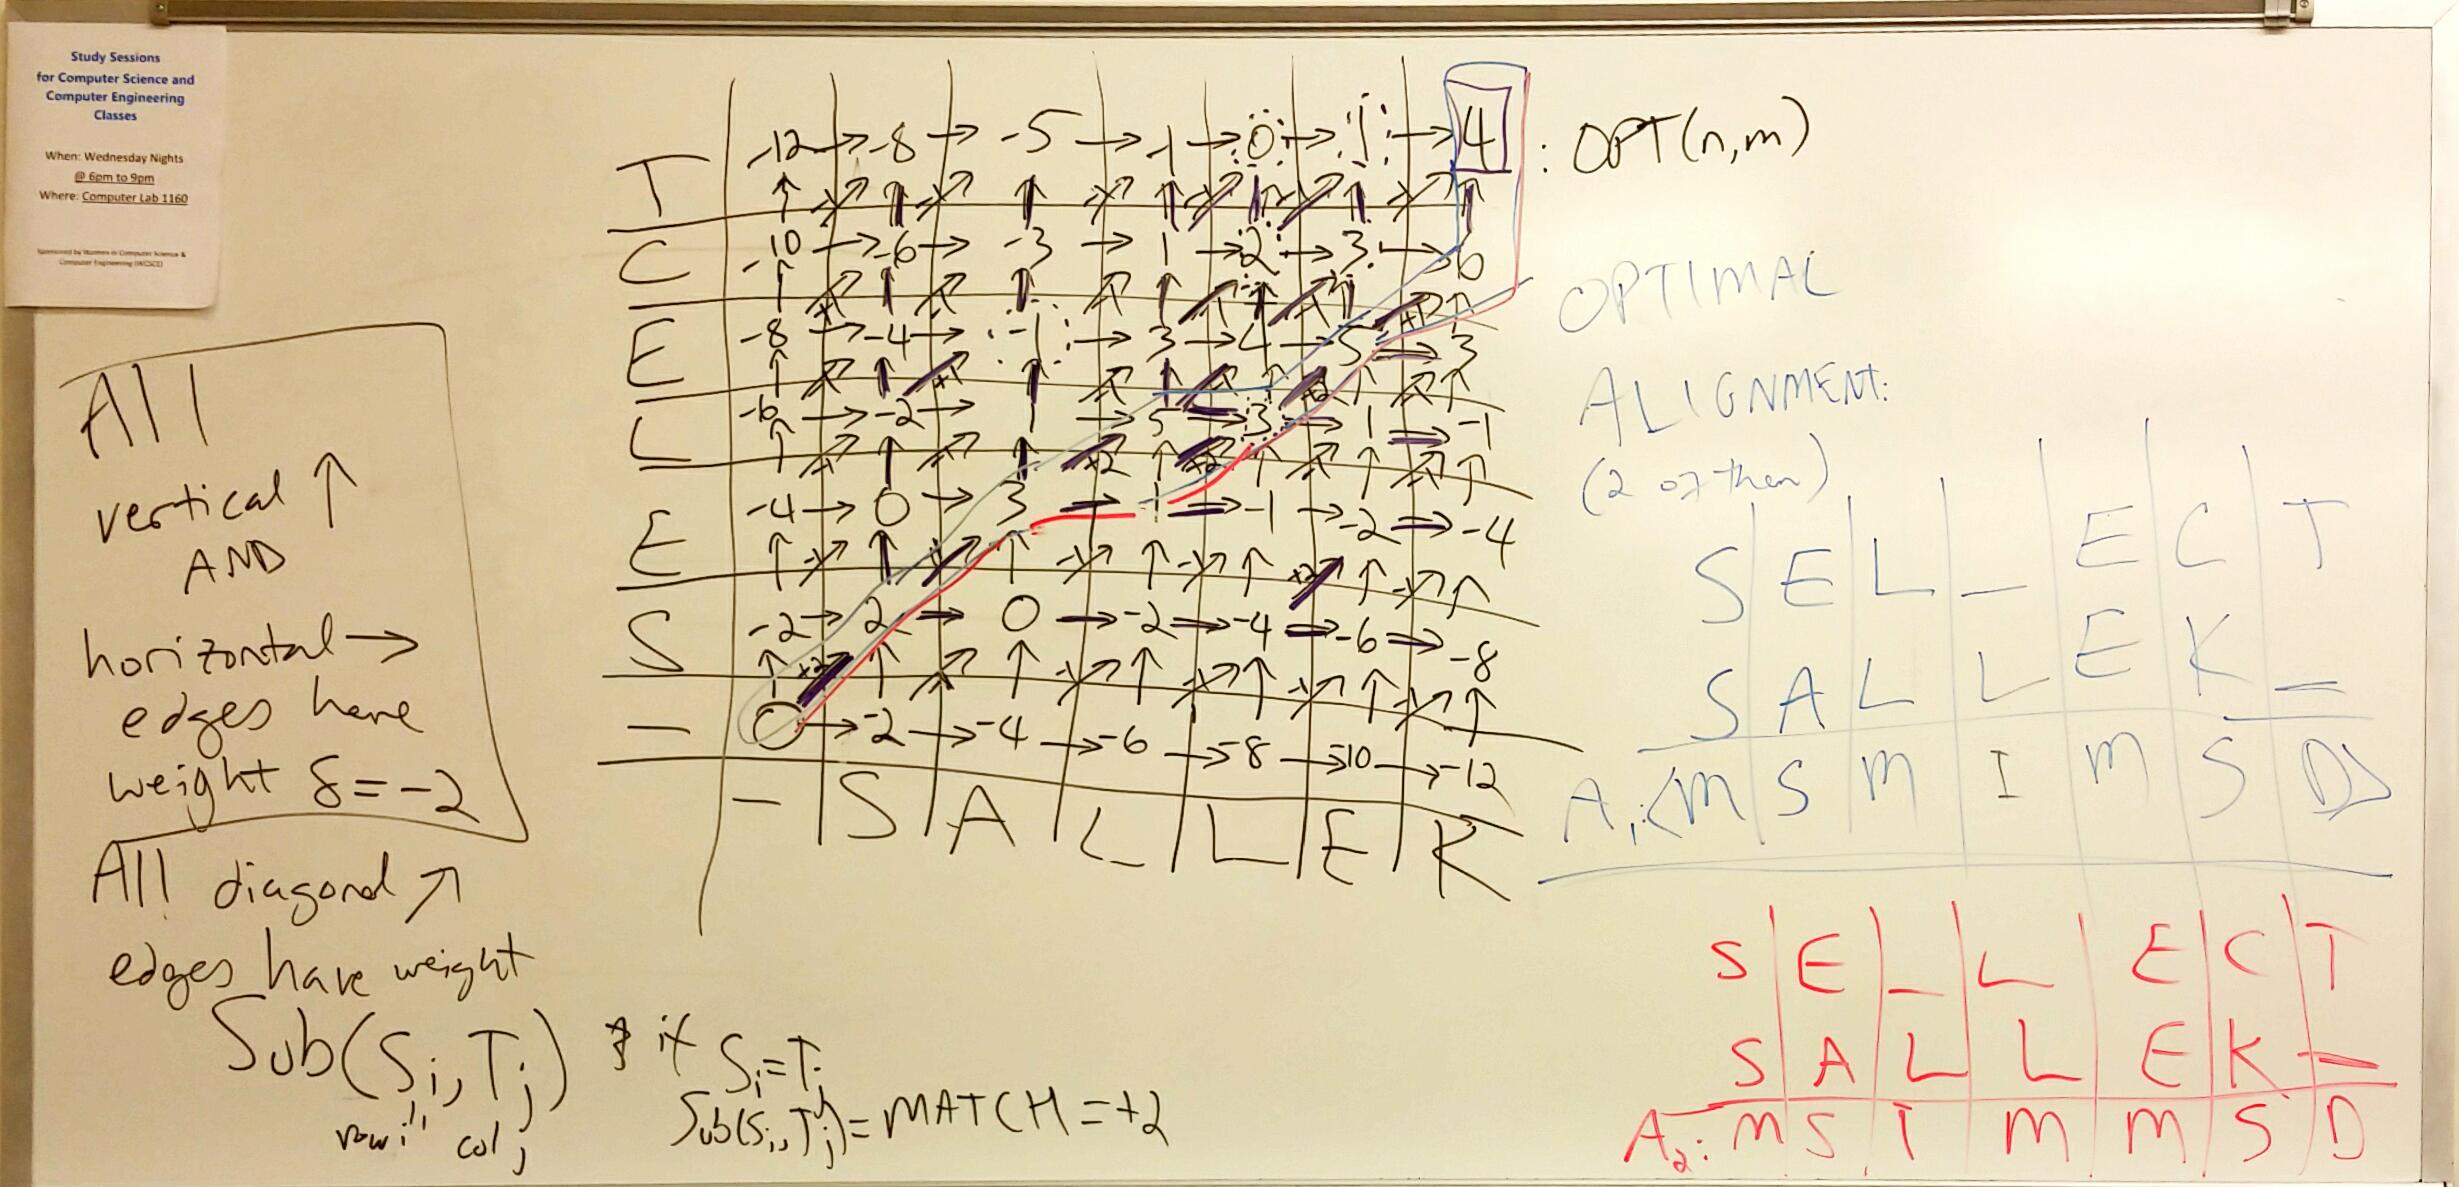 Study Sessions
for Computer Science and
Computer Engineering
Classes
When: Wednesday Nights
@ 6pm to 9pm
Where: Computer Lab 1160
Sponsored by Women in Computer Science &
Computer Engineering (WCSCE)
All
vertical ↑
AND
horizontal →
edges have
weight δ = -2
All diagonal ↗
edges have weight
Sub(Si, Tj)
row i col j
if Si = Tj
Sub(Si, Tj) = MATCH = +2
T -12 → -8 → -5 → -1 → 0 → 1 → 4 : OPT(n,m)
C -10 → -6 → -3 → 1 → 2 → 3 → 6
E -8 → -4 → -1 → 3 → 4 → 5 → 3
L -6 → -2 → 1 → 5 → 3 → 1 → -1
E -4 → 0 → 3 → 1 → -1 → -2 → -4
S -2 → 2 → 0 → -2 → -4 → -6 → -8
- 0 → -2 → -4 → -6 → -8 → -10 → -12
- S A L L E K
OPTIMAL
ALIGNMENT:
(2 of them)
S E L _ E C T
S A L L E K _
A1: <M S M I M S D>
S E _ L E C T
S A L L E K _
A2: M S I M M S D